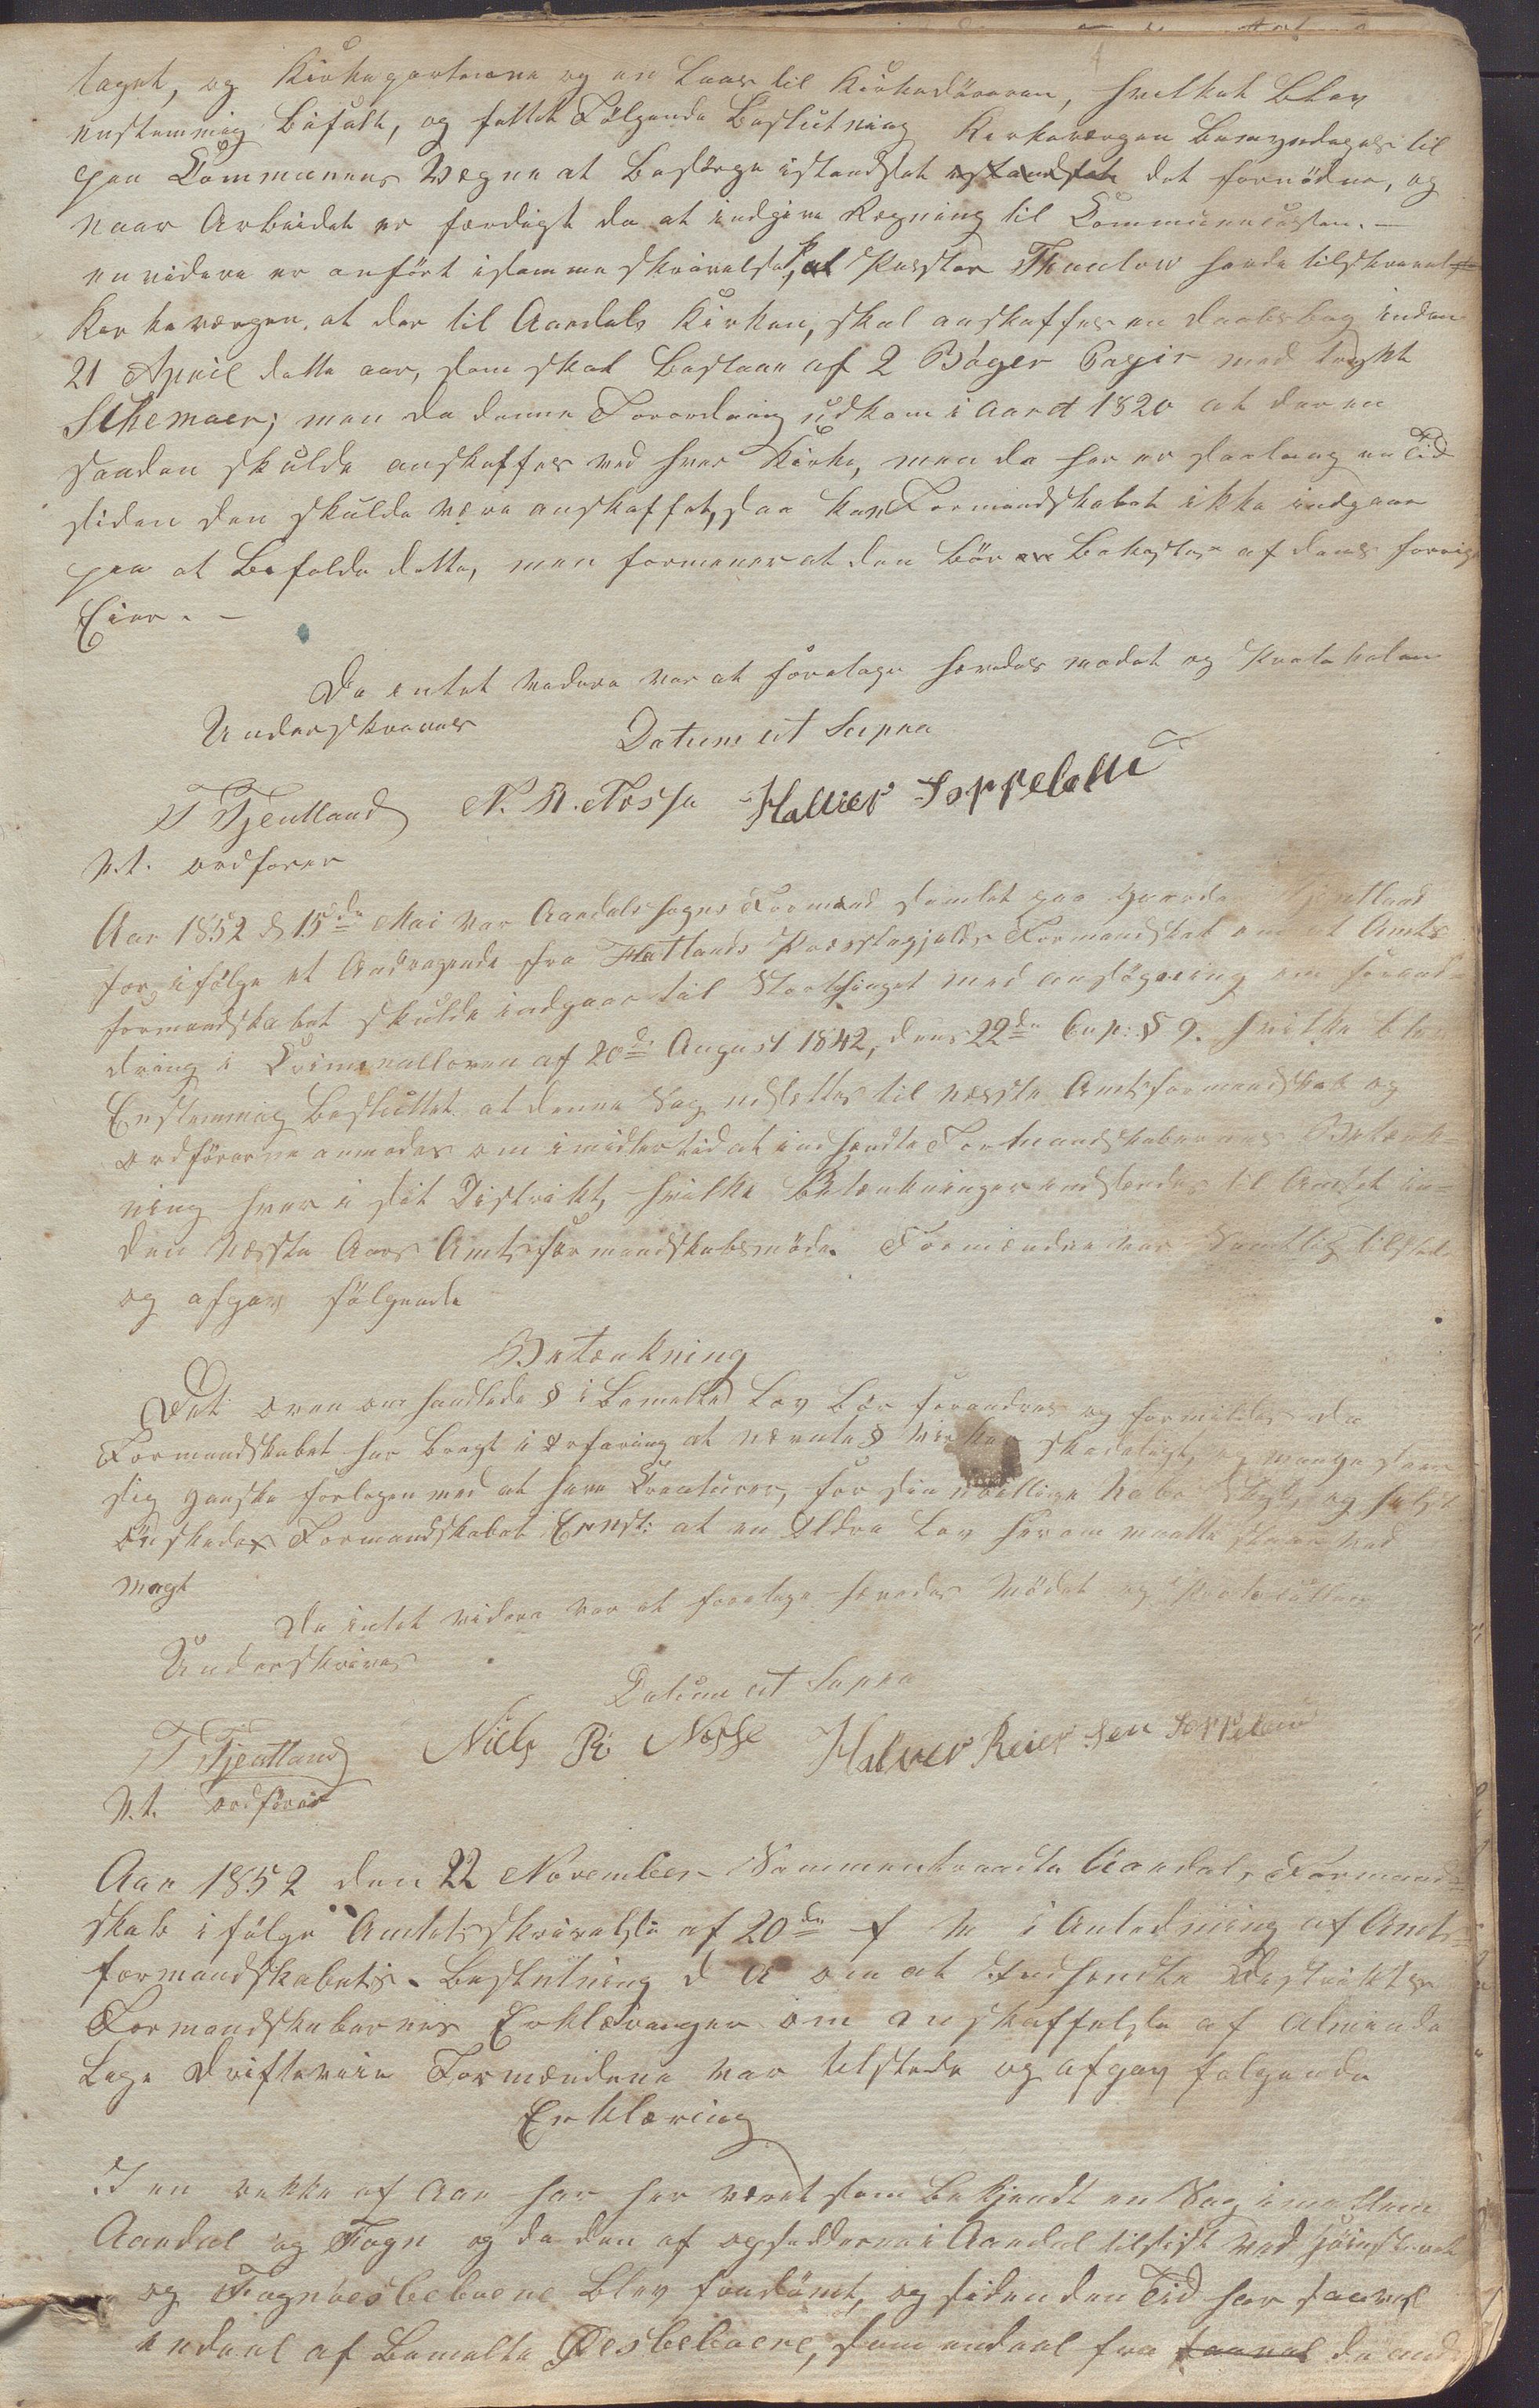 taget, og Kirkeportene og en Laas til Kirkedöreren, hvilket Blev
enstemmig Bifalt, og fattet Følgende Beslutning Kirkeværgen Bemyndages til
paa Communens Vegne at Besörge istandsat istandsat det fornödne, og
naar Arbeidet er færdigt da at indgive Regning til Communecassen. —
envidere er anfört i samme skrivelse, at Pastor Thaulow havde tilskrevet
Kirkeværgen, at der til Aardals Kirken, skal anskaffes en daabsbog inden
21 April dette aar, som skal Bestaae af 2 Böger Papir med trykt
Schemaer; men da denne Forordning udkom i Aaret 1820 at der en
saadan skulde anskaffes ved hver Kirke, men da her er saalang en Tid
siden den skulde være anskaffet, saa kan Formandskabet ikke indgaae
paa at Bifalde dette, men formener at den Bör Bekostes af dens forrige
Eier. —
Da intet videre var at foretage hævedes mødet og Protokolen
Underskreves
Datum ut Supra
T Tjentland N. R. Nesse Halver Soppeland
n.t. ordfører
Aar 1852 d 15de Mai var Aardals Sogns Formænd samlet paa Gaarden Tjentland
for, ifølge et Andragende fra Hetlands Præstegjelds Formandskab om at Amts
formandskabet skulde indgaae til Storthinget med ansøgning om forand-
dring i Criminalloven af 20de August 1842, dens 22de Cap: § 9. hvilke blev
Enstemmig Besluttet at denne Sag udsættes til næste Amtsformandskab og
ordförerne anmodes om imidlertid at indhendte Formandskabernes Betænk-
ning hver i sit Distrikt, hvilke Betænkninger indsendes til Amtet in-
den næste Aars Amtsformandskabsmöde. Formændene var Samtlig tilstede
og afgav følgende
Betænkning
Det oven omhandlede § i Bemelte Lov Bör forandres og formildes da
Formandskabet har bragt i Erfaring at nævnte § virker skadeligt, og mange seer
sig ganske forlegen med at have Creaturer, for sin Naboe Skyld, og helst
önskede Formandskabet Enst: at en Eldre Lov herom maatte staae ved
magt
Da intet videre var at foretage hævedes Mödet og Protocollen
Underskrives
Datum ut Supra
T Tjentland Niels R. Nesse Halver Reiersen Soppeland
n.t. ordförer
Aar 1852 den 22 November Sammentraadte Aardals Formand-
skab i følge Amtets skrivelse af 20de f M i Anledning af Amts-
formandskabets Beslutning d A om at indhendte Destrikts
Formandskabernes Erklæringer om anskaffelse af alminde
Lige drifteveie Formændene var tilstede og afgav følgende
Erklæring
I en række af Aar har her været som Bekjendt en Sag imellem
Aardal og Fogn og da den af opsidderne i Aardal tilsist ved
og Fognöesbeboene Blev fradömt, og siden den Tid har saavel
endeel af Bemelte Öesbeboere, som endeel fra saavel de and